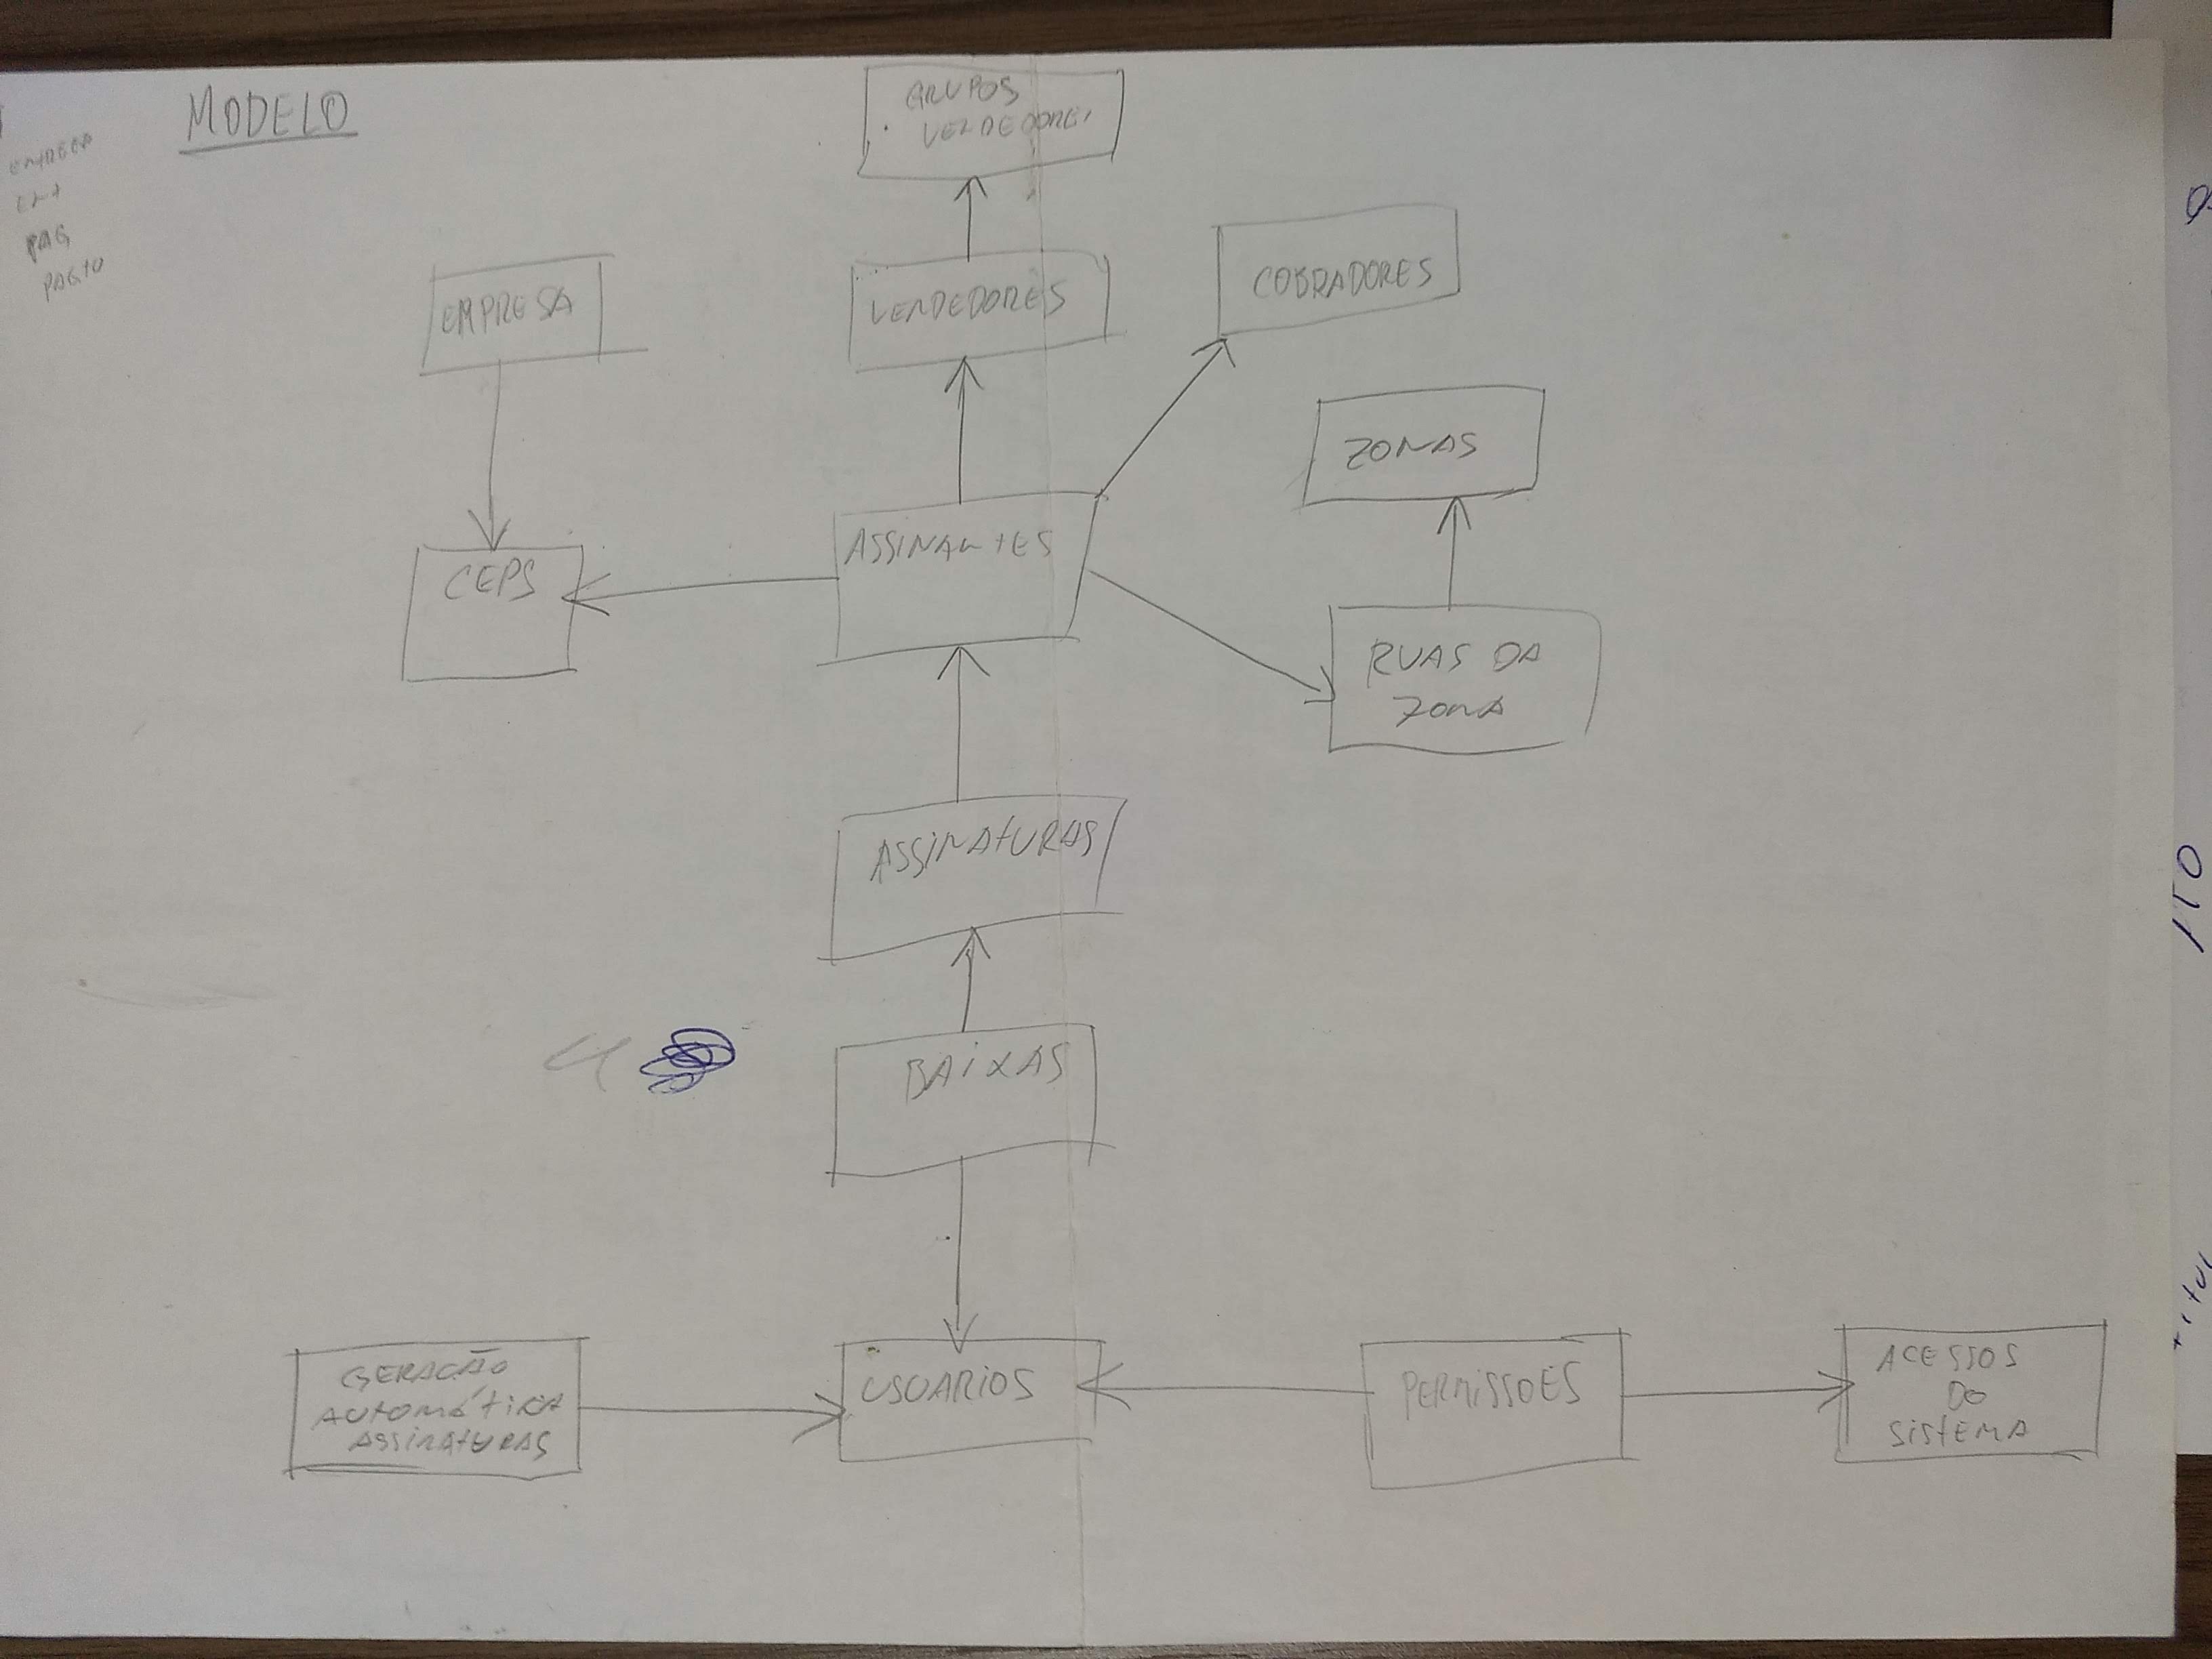 MODELO
GRUPOS
VENDEDORES
PAG
PAGTO
EMPRESA
VENDEDORES
COBRADORES
ZONAS
CEPS
ASSINANTES
RUAS DA
ZONA
ASSINATURAS
BAIXAS
GERAÇÃO
AUTOMÁTICA
ASSINATURAS
USUARIOS
PERMISSOES
ACESSOS
DO
SISTEMA